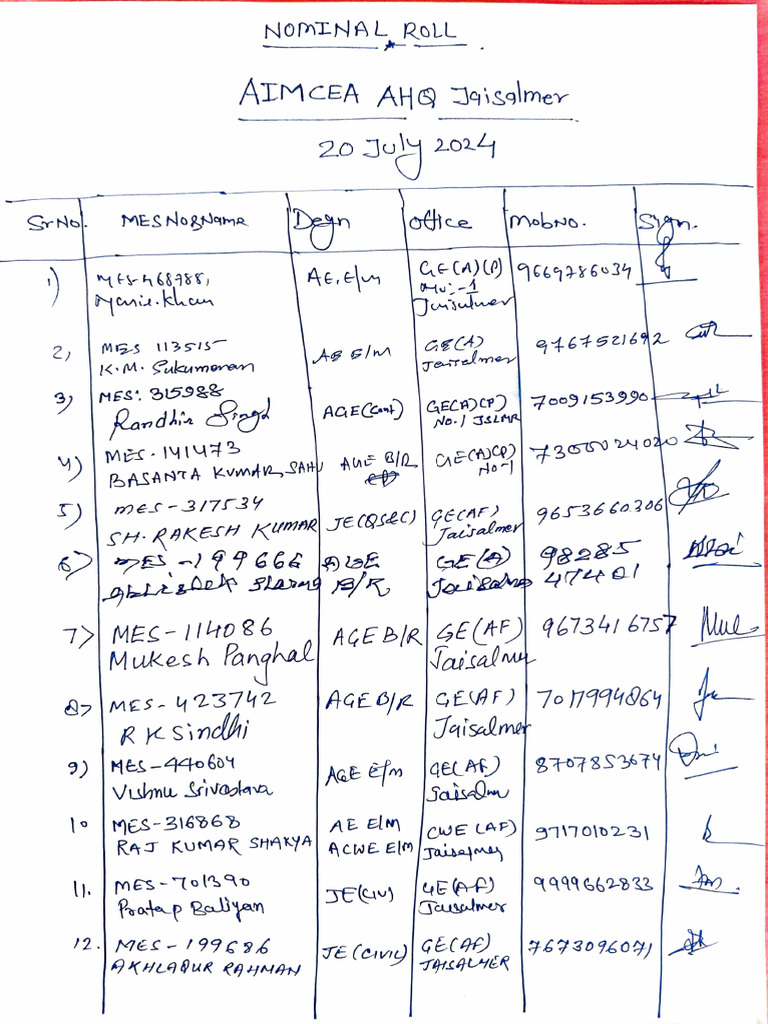 NOMINAL ROLL
AIMCEA AHQ Jaisalmer
20 July 2024
Sr No. MES No & Name Degn Office Mob No. Sign.
1) MES-468788, AE, E/M GE(A)(P) 9669786034
Khan No:-1
Jaisalmer
2, MES 113515 AE E/M GE(A) 9767521692
K.M. Sukumaran Jaisalmer
3) MES: 315988 AGE(Cont) GE(A)(P) 7009153990
Randhir Singh No.1 JSLMR
4) MES-141473 AGE B/R GE(A)(P) 7300024020
BASANTA KUMAR SAHU No-1
5) MES-317534 JE(QS&C) GE(AF) 9653660306
SH. RAKESH KUMAR Jaisalmer
6) MES-199666 AGE GE(A) 98285
Abhishek Sharma B/R Jaisalmer 47401
7) MES-114086 AGE B/R GE(AF) 9673416757
Mukesh Panghal Jaisalmer
8) MES-423742 AGE B/R GE(AF) 7017994864
R K Sindhi Jaisalmer
9) MES-440604 AGE E/M GE(AF) 8707853674
Vishnu Srivastava Jaisalmer
10 MES-316868 AE E/M CWE (AF) 9717010231
RAJ KUMAR SHAKYA ACWE E/M Jaisalmer
11. MES-701390 JE(Civ) GE(AF) 9999662833
Pratap Baliyan Jaisalmer
12. MES-199686 JE(CIVIL) GE(AF) 7673096071
AKHLAQUR RAHMAN JAISALMER